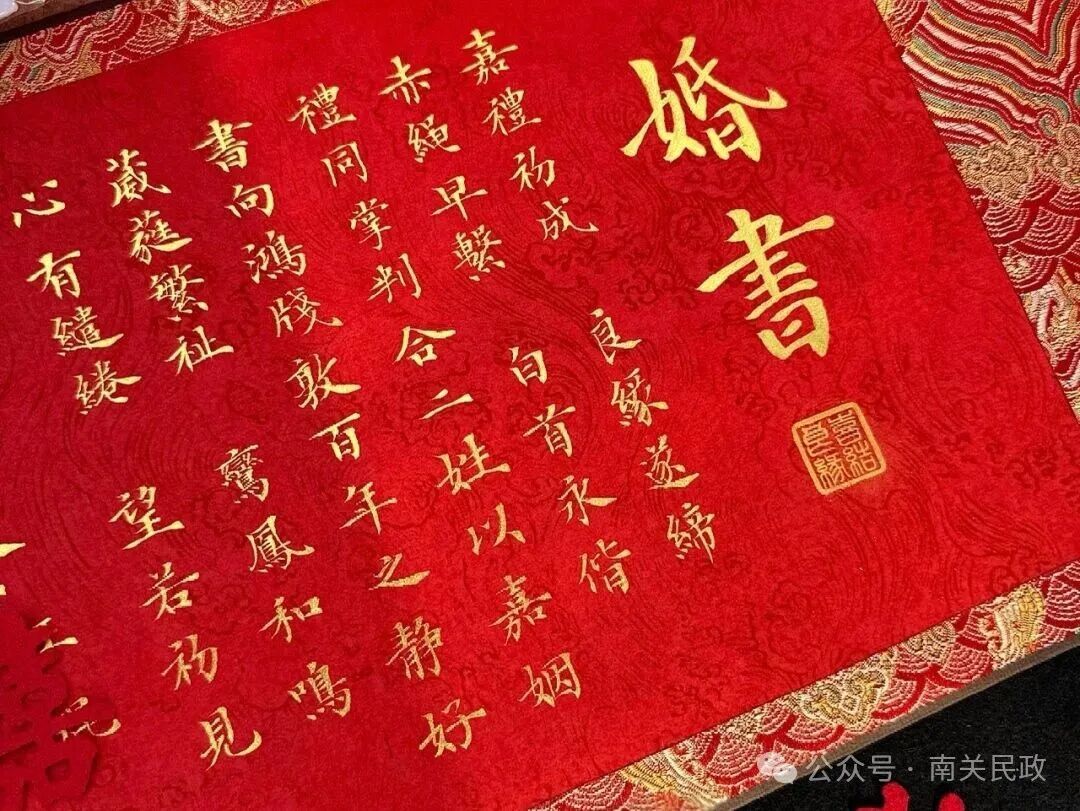 婚書
喜结良缘
嘉禮初成 良緣遂締
赤繩早繫 白首永偕
禮同掌判合二姓以嘉姻
書向鴻牋敦百年之静好
葳蕤繁祉 鸞鳳和鳴
心有繾綣 望若初見
公众号 · 南关民政